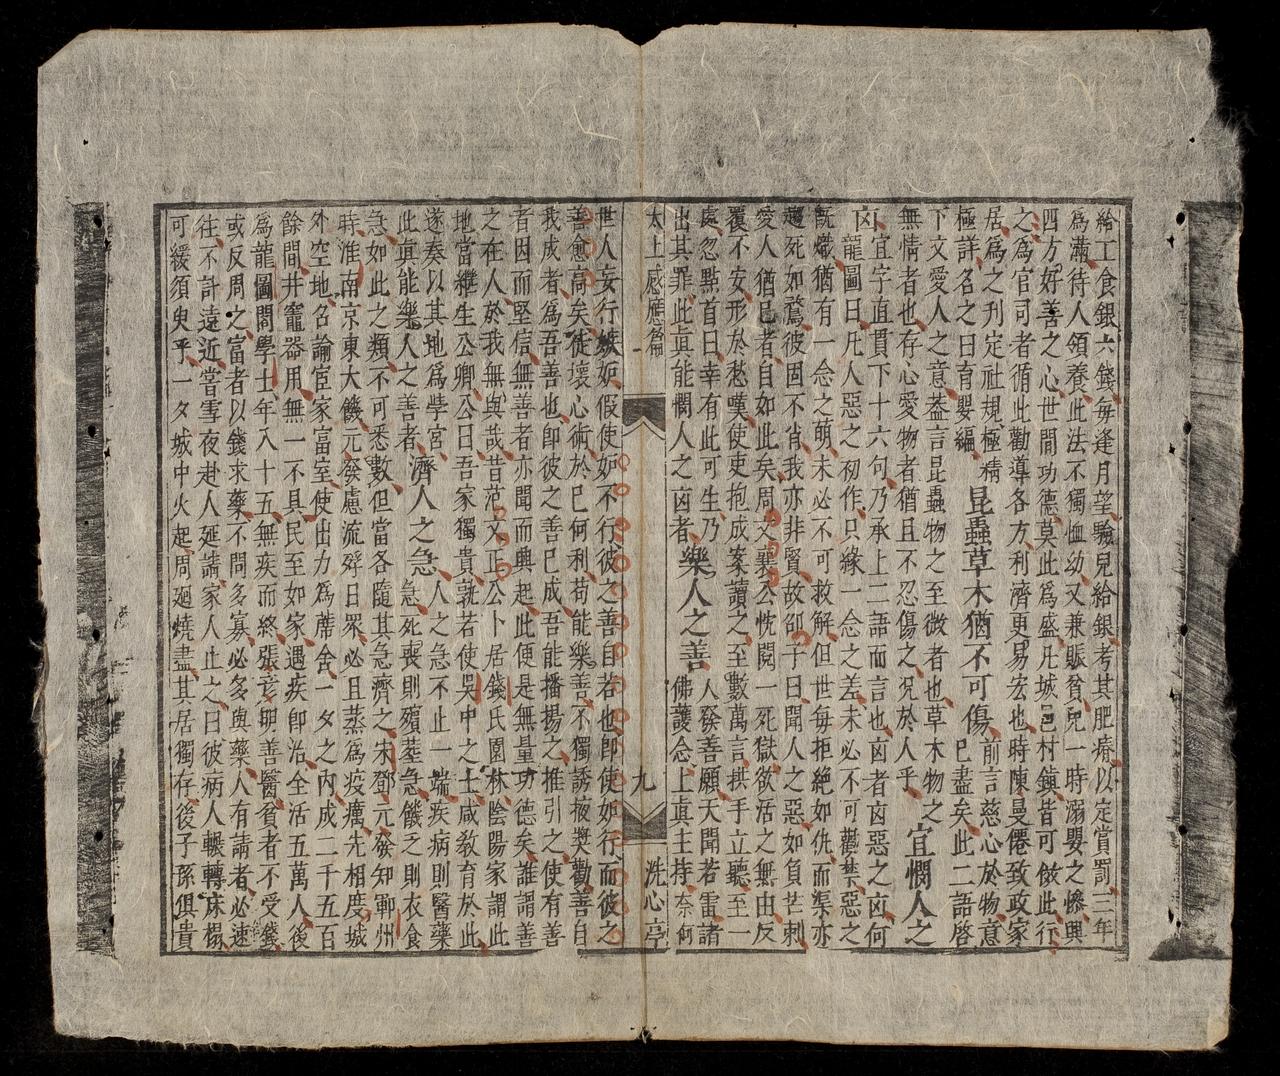 給工食銀六錢每逢月望驗兒給銀考其肥瘠以定賞罰三年
爲滿待人領養此法不獨恤幼又兼賑貧兒一時溺嬰之慘興
四方好善之心世間功德莫此爲盛凡城邑村鎮皆可倣此行
之爲官司者循此勸導各方利濟更易宏也時陳曼僊致政家
居爲之刋定社規極精
極詳名之曰育嬰編 昆蟲草木猶不可傷 前言慈心於物意
已盡矣此二語啓
下文愛人之意葢言昆蟲物之至微者也草木物之
無情者也存心愛物者猶且不忍傷之況於人乎 宜憫人之
凶 宜字直貫下十六句乃承上二語而言也凶者凶惡之凶何
龍圖曰凡人惡之初作只緣一念之差未必不可勸禁惡之
旣熾猶有一念之萌未必不可救解但世每拒絕如仇而渠亦
趨死如鶩彼固不肖我亦非賢故邵子曰聞人之惡如負芒刺
愛人猶巳者自如此矣周文襄公忱閱一死獄欲活之無由反
覆不安形於愁嘆使吏抱成案讀之至數萬言拱手立聽至一
處忽點首曰幸有此可生乃
出其罪此眞能憫人之凶者 樂人之善 人發善願天聞若雷諸
佛護念上眞主持奈何
太上感應篇 九 洗心亭
世人妄行嫉妬假使妬不行彼之善自若也卽使妬行而彼之
善愈高矣徒壞心術於巳何利苟能樂善不獨誘掖奬勸善自
我成者爲吾善也卽彼之善巳成吾能播揚之推引之使有善
者因而堅信無善者亦聞而興起此便是無量功德矣誰謂善
之在人於我無與哉昔范文正公卜居錢氏園林陰陽家謂此
地當繼生公卿公曰吾家獨貴孰若使吳中之士咸敎育於此
遂奏以其地爲學宮
此眞能樂人之善者 濟人之急 人之急不止一端疾病則醫藥
急死喪則殯塟急饑乏則衣食
急如此之類不可悉數但當各隨其急濟之宋鄧元發知鄆州
時淮南京東大饑元發慮流殍日衆必且蒸爲疫癘先相度城
外空地名諭宦家富室使出力爲蓆舍一夕之內成二千五百
餘間井竈器用無一不具民至如家遇疾卽治全活五萬人後
爲龍圖閣學士年八十五無疾而終張彥明善醫貧者不受錢
或反周之富者以錢求藥不問多寡必多與藥人有請者必速
往不計遠近當雪夜赴人延請家人止之曰彼病人輾轉床榻
可緩須臾乎一夕城中火起周廻燒盡其居獨存後子孫俱貴